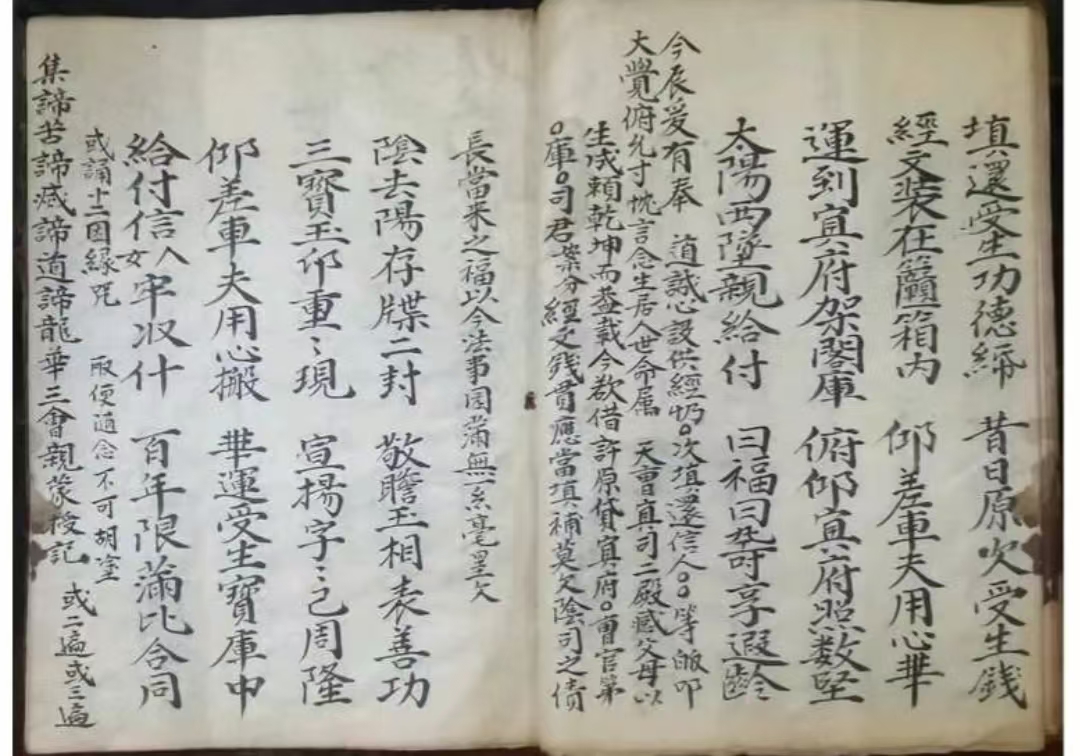 填還受生功德經 昔日原欠受生錢
經文装在籠箱内 仰差車夫用心華
運到冥府架閣庫 俯仰冥府照数堅
太陽西墜親給付 曰福曰壽享遐齡
今辰爰有奉 道誠心設供經忏○次填還信人○○等皈叩
大覺俯允寸忱言念生居人世命属 天曹真司二殿感父母以
生成頼乾坤而盖载今欲借許原貸冥府○曹官第
○庫○司君案分經文錢貫應當填補莫欠陰司之债
長當来之福以今法事园滿無一糸毫罣欠
陰去陽存牒二封 敬瞻玉相表善功
三寳玉印重〻現 宣揚字〻已周隆
仰差車夫用心搬 華運受生寳庫中
給付信人女牢収什 百年限滿比合同
或誦十二因緣咒 取便随念不可胡塗
集諦苦諦滅諦道諦龍華三會親蒙授記 或二遍或三遍